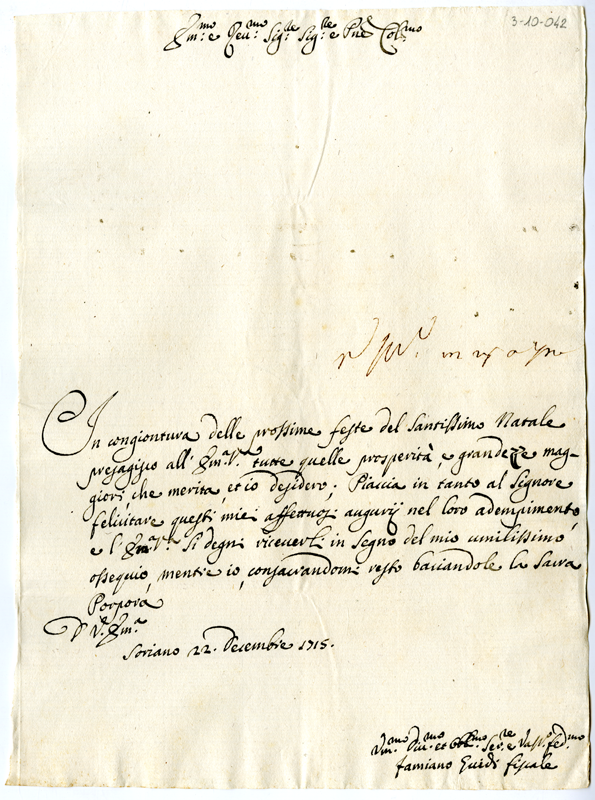 3-10-042
Em:mo e Reu:mo Sig:re Sig:re e Pne Col:mo
In congiontura delle prossime feste del Santissimo Natale
presagisco all'Em:a V:a tutte quelle prosperità, e grandezze mag-
giori, che merita, et io desidero; Piaccia in tanto al Signore
felicitare questi miei affettuosi augurij nel loro adempimento,
e l'Em:a V:a si degni riceuerli in segno del mio umilissimo
ossequio, mentre io, consacrandomi resto baciandole la Sacra
Porpora
D V. Em:a
Soriano 22. Decembre 1715.
Vm:mo Diu:mo et Obl:mo Ser:re e Vass:o fed:mo
famiano Guidi fiscale